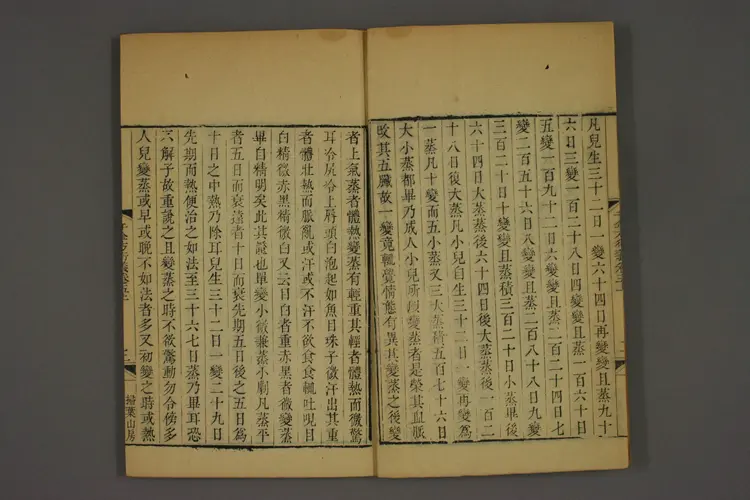 凡兒生三十二日一變六十四日再變變且蒸九十
六日三變一百二十八日四變變且蒸一百六十日
五變一百九十二日六變變且蒸二百二十四日七
變二百五十六日八變變且蒸二百八十八日九變
三百二十日十變變且蒸積三百二十日小蒸畢後
六十四日大蒸蒸後六十四日後大蒸蒸後一百二
十八日後大蒸凡小兒自生三十二日一變再變為
一蒸凡十變而五小蒸又三大蒸積五百七十六日
大小蒸都畢乃成人小兒所以變蒸者是榮其血脈
改其五臟故一變竟輒覺情態有異其變蒸之後變
者上氣蒸者體熱變蒸有輕重其輕者體熱而微驚
耳冷尻冷上唇頭白泡起如魚目珠子微汗出其重
者體壯熱而脈亂或汗或不汗不欲食食輒吐哯目
白精微赤黑精微白又云目白者重赤黑者微變蒸
畢自精明矣此其證也單變小微兼蒸小劇凡蒸平
者五日而衰遠者十日而衰先期五日後之五日為
十日之中熱乃除耳兒生三十二日一變二十九日
先期而熱便治之如法至三十六七日蒸乃畢耳恐
不解了故重說之且變蒸之時不欲驚動勿令傍多
人兒變蒸或早或晚不如法者多又初變之時或熱
掃葉山房